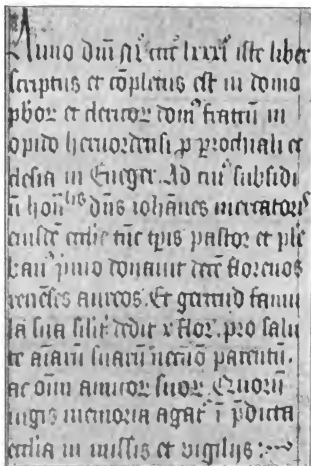 Anno dm̄ mº cccº lxxxº iste liber
scriptus et cōpletus est in domo
pb̄or et clericor dom⁹ fratrū in
opido heruordensi p prochiali ec
clesia in Engeger. Ad cui⁹ subsidi
ū hon̄lis dn̄s ioh̄anes mercatoris
eiusdē ecclie tūc tp̄is pastor et ple
ban⁹ p̄mo donauit decē florenos
renēses aureos. Et gertrud famu
la sua silir̄ dedit x flor. pro salu
te aīarū suarū necnō parentū.
ac oīm amicor suor. Quorū
iugis memoria agat̄ ī p̄dicta
ecclia in missis et vigilijs :~